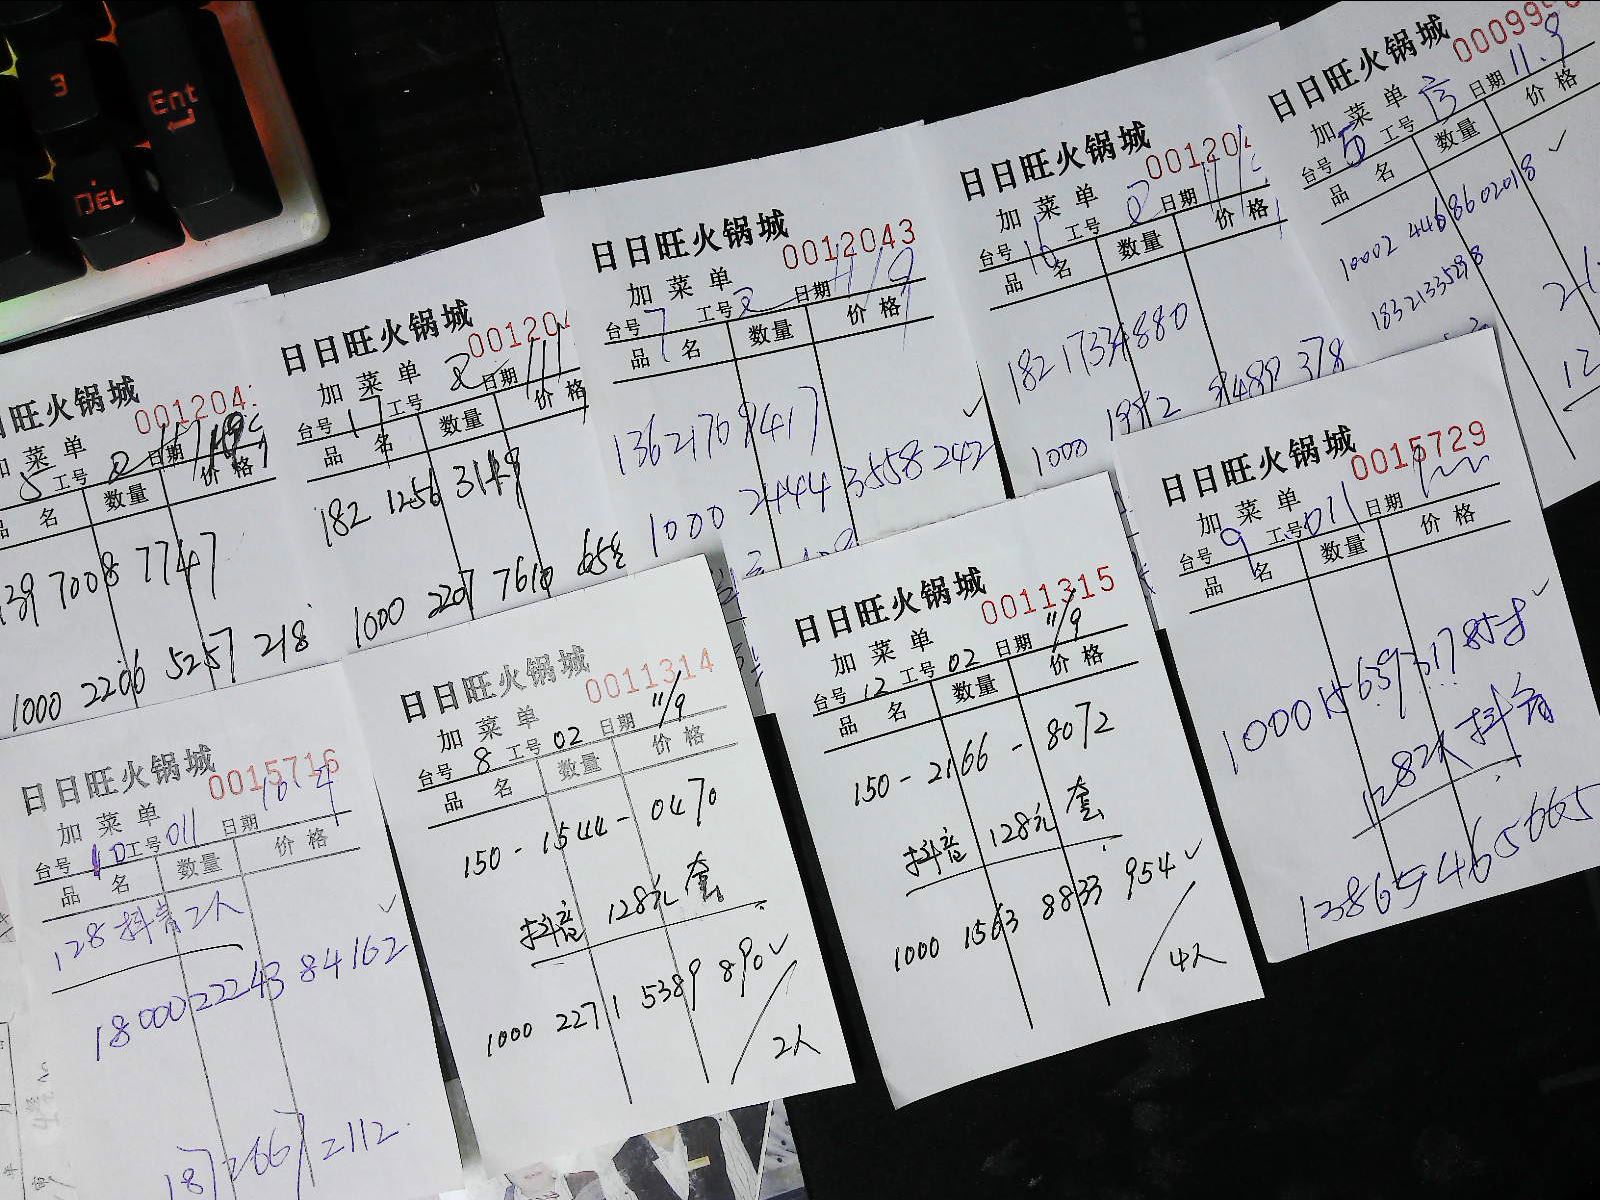 3
Ent
DEL
日日旺火锅城
加菜单
台号 5 工号 日期 11.9
品名 数量 价格
10002 446 8602018
18321335298
日日旺火锅城
加菜单
台号 10 工号 日期
品名 数量 价格
182 1733 4880
1000
378
日日旺火锅城
加菜单 0012043
台号 7 工号 2 日期 11/9
品名 数量 价格
13621709417
1000 2444 3558 242
日日旺火锅城
加菜单
台号 17 工号 2 日期
品名 数量 价格
182 1256 3149
1000 2207
日旺火锅城
加菜单
5 工号 2 日期
名 数量 价格
139 7008 7747
1000 2206 5257 218
日日旺火锅城
加菜单 0015729
台号 9 工号 011 日期
品名 数量 价格
128 2人 抖音
13865465665
日日旺火锅城
加菜单 0011315
台号 12 工号 02 日期 11/9
品名 数量 价格
150-2166-8072
抖音 128元 套
1000 1563 8833 954
4人
日日旺火锅城
加菜单 0011314
台号 8 工号 02 日期 11/9
品名 数量 价格
150-1544-0470
抖音 128元 套
1000 2271 5389 890
2人
日日旺火锅城
加菜单 0015716
台号 10 工号 011 日期
品名 数量 价格
128 抖音 2人
18000 22243 84162
187 2667 2112